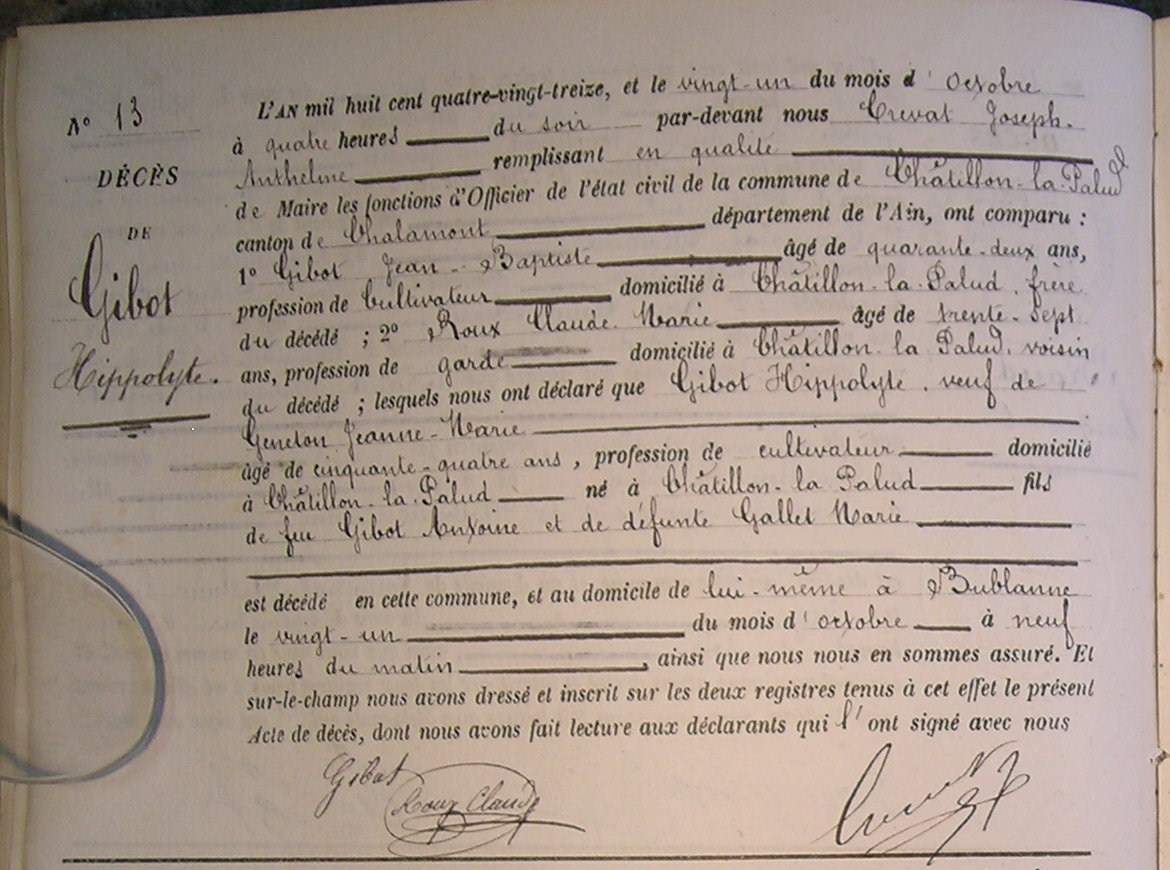 N° 13
DÉCÈS
DE
Gibot
Hippolyte.
L'AN mil huit cent quatre-vingt-treize, et le vingt-un du mois d'Octobre
à quatre heures du soir par-devant nous Crevat Joseph.
Anthelme remplissant en qualité
de Maire les fonctions d'Officier de l'état civil de la commune de Châtillon-la-Palud
canton de Chalamont département de l'Ain, ont comparu :
1° Gibot Jean-Baptiste âgé de quarante-deux ans,
profession de Cultivateur domicilié à Châtillon-la-Palud, frère
du décédé ; 2° Roux Claude Marie âgé de trente-sept
ans, profession de garde domicilié à Châtillon la Palud, voisin
du décédé ; lesquels nous ont déclaré que Gibot Hippolyte, veuf de
Geneton Jeanne-Marie
âgé de cinquante-quatre ans, profession de cultivateur domicilié
à Châtillon-la-Palud né à Châtillon-la Palud fils
de feu Gibot Antoine et de défunte Gallet Marie
est décédé en cette commune, et au domicile de lui-même à Bublanne
le vingt-un du mois d'octobre à neuf
heures du matin, ainsi que nous nous en sommes assuré. Et
sur-le-champ nous avons dressé et inscrit sur les deux registres tenus à cet effet le présent
Acte de décès, dont nous avons fait lecture aux déclarants qui l'ont signé avec nous
Gibot
Roux Claude
Crevat